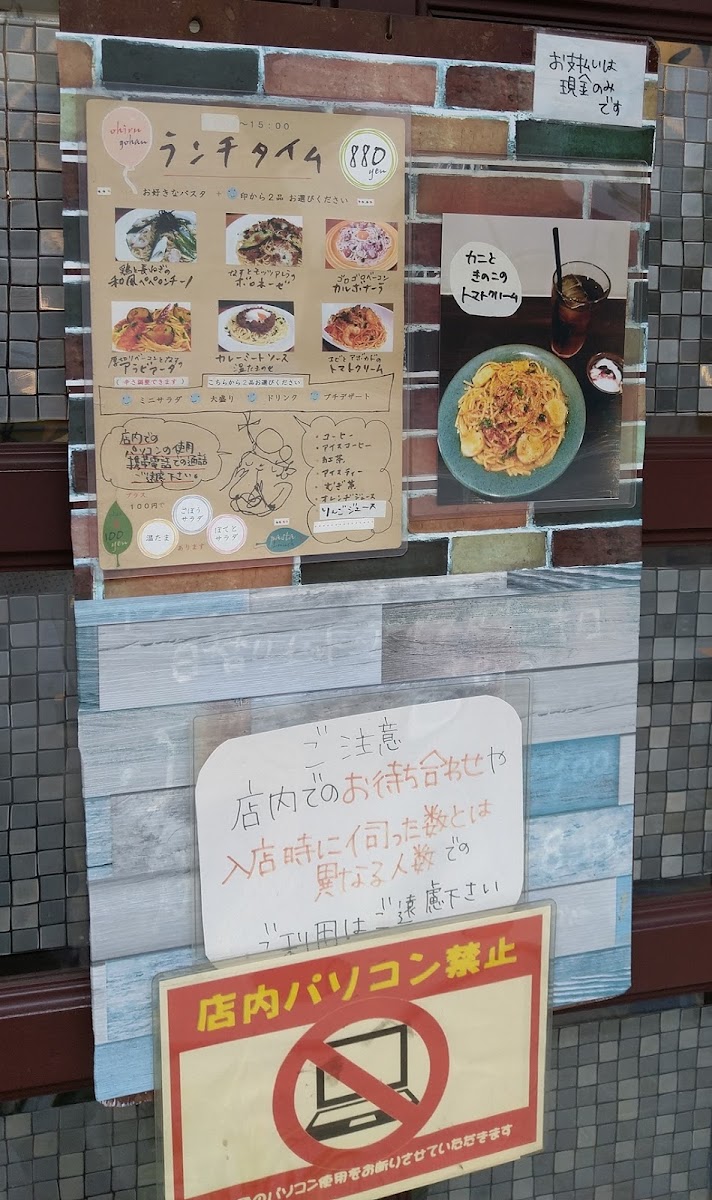 お支払いは
現金のみ
です
ohiru
gohan
～15:00
ランチタイム
880
yen
お好きなパスタ + 印から2品 お選びください
鶏と長ねぎの
和風ペペロンチーノ
なすとモッツァレラの
ボロネーゼ
ゴロゴロベーコン
カルボナーラ
厚切りベーコンとなすの
アラビアータ
カレーミートソース
温たまのせ
エビとアボカドの
トマトクリーム
こちらから2品お選びください
ミニサラダ 大盛り ドリンク プチデザート
店内での
パソコンの使用
携帯電話での通話
ご遠慮下さい。
・コーヒー
・アイスコーヒー
・紅茶
・アイスティー
・むぎ茶
・オレンジジュース
りんごジュース
プラス
100円で
100
yen
温たま
ごぼう
サラダ
ぽてと
サラダ
あります
pasta
カニと
きのこの
トマトクリーム
ご注意
店内でのお待ち合わせや
入店時に伺った数とは
異なる人数での
ご利用はご遠慮下さい
店内パソコン禁止
のパソコン使用をお断りさせていただきます